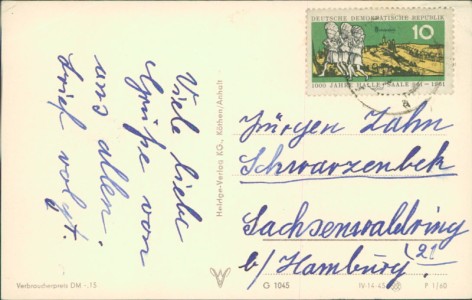 Viele liebe
Grüße von
uns allen.
Brief volgt.
DEUTSCHE DEMOKRATISCHE REPUBLIK
10
1000 JAHRE HALLE SAALE 961 – 1961
Jürgen Zahn
Schwarzenbek
Sachsenwaldring
21
b/ Hamburg
Heldge-Verlag KG., Köthen/Anhalt
Verbraucherpreis DM -.15
G 1045
IV-14-45
P 1/60